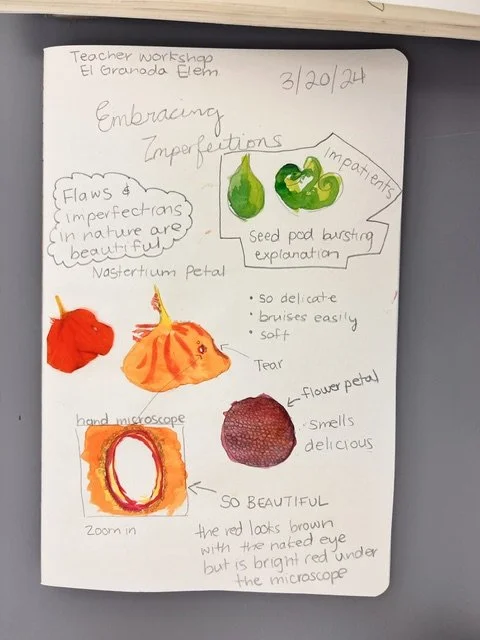 Teacher workshop
El Granada Elem
3/20/24
Embracing
Imperfections
Flaws &
imperfections
in nature are
beautiful
impatients
Seed pod bursting
explanation
Nastertium Petal
• so delicate
• bruises easily
• soft
Tear
flower petal
Smells
delicious
hand microscope
Zoom in
SO BEAUTIFUL
the red looks brown
with the naked eye
but is bright red under
the microscope